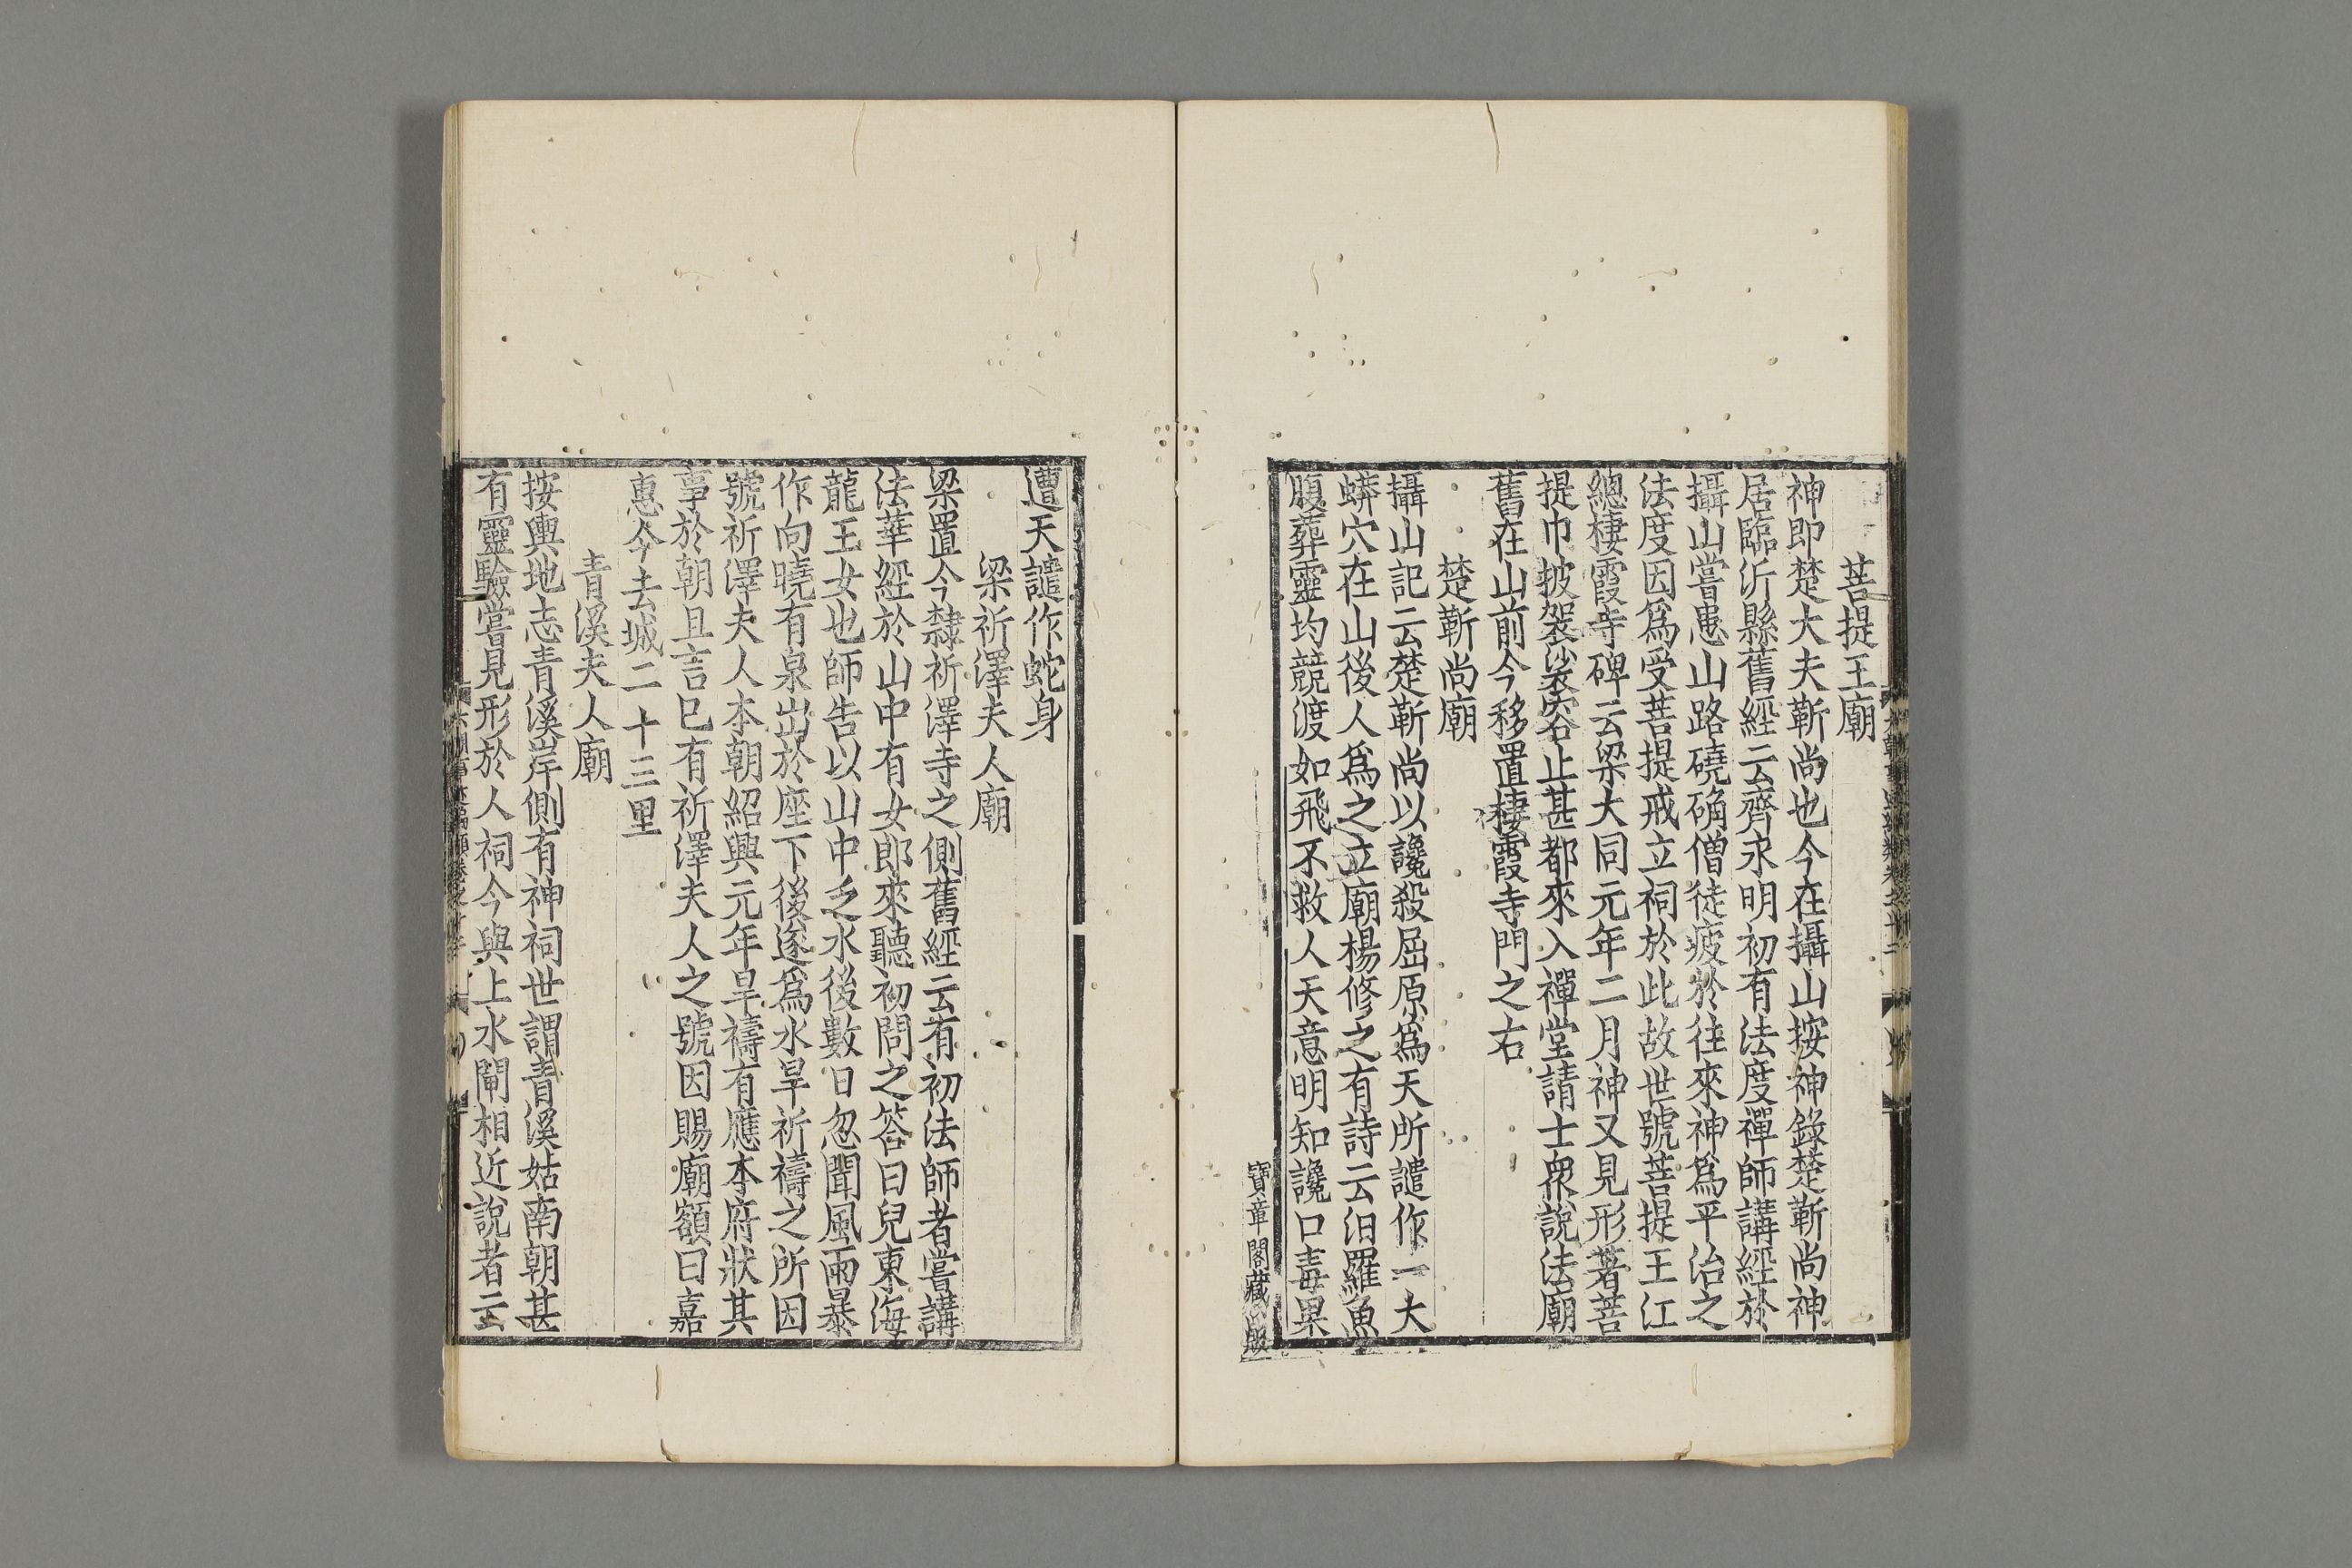 菩提王廟
神即楚大夫靳尚也今在攝山按神錄楚靳尚神
居臨沂縣舊經云齊永明初有法度禪師講經於
攝山嘗患山路磽确僧徒疲於往來神爲平治之
法度因爲受菩提戒立祠於此故世號菩提王江
總棲霞寺碑云梁大同元年二月神又見形著菩
提巾披袈裟容止甚都來入禪堂請士衆說法廟
舊在山前今移置棲霞寺門之右
楚靳尚廟
攝山記云楚靳尚以讒殺屈原爲天所譴作一大
蟒穴在山後人爲之立廟楊修之有詩云汨羅魚
腹葬靈均競渡如飛不救人天意明知讒口毒果
寶章閣藏版
遭天譴作蛇身
梁祈澤夫人廟
梁置今隸祈澤寺之側舊經云有初法師者嘗講
法華經於山中有女郎來聽初問之答曰兒東海
龍王女也師告以山中乏水後數日忽聞風雨暴
作向曉有泉出於座下後遂爲水旱祈禱之所因
號祈澤夫人本朝紹興元年旱禱有應本府狀其
事於朝且言已有祈澤夫人之號因賜廟額曰嘉
惠今去城二十三里
青溪夫人廟
按輿地志青溪岸側有神祠世謂青溪姑南朝甚
有靈驗嘗見形於人祠今與上水閘相近說者云